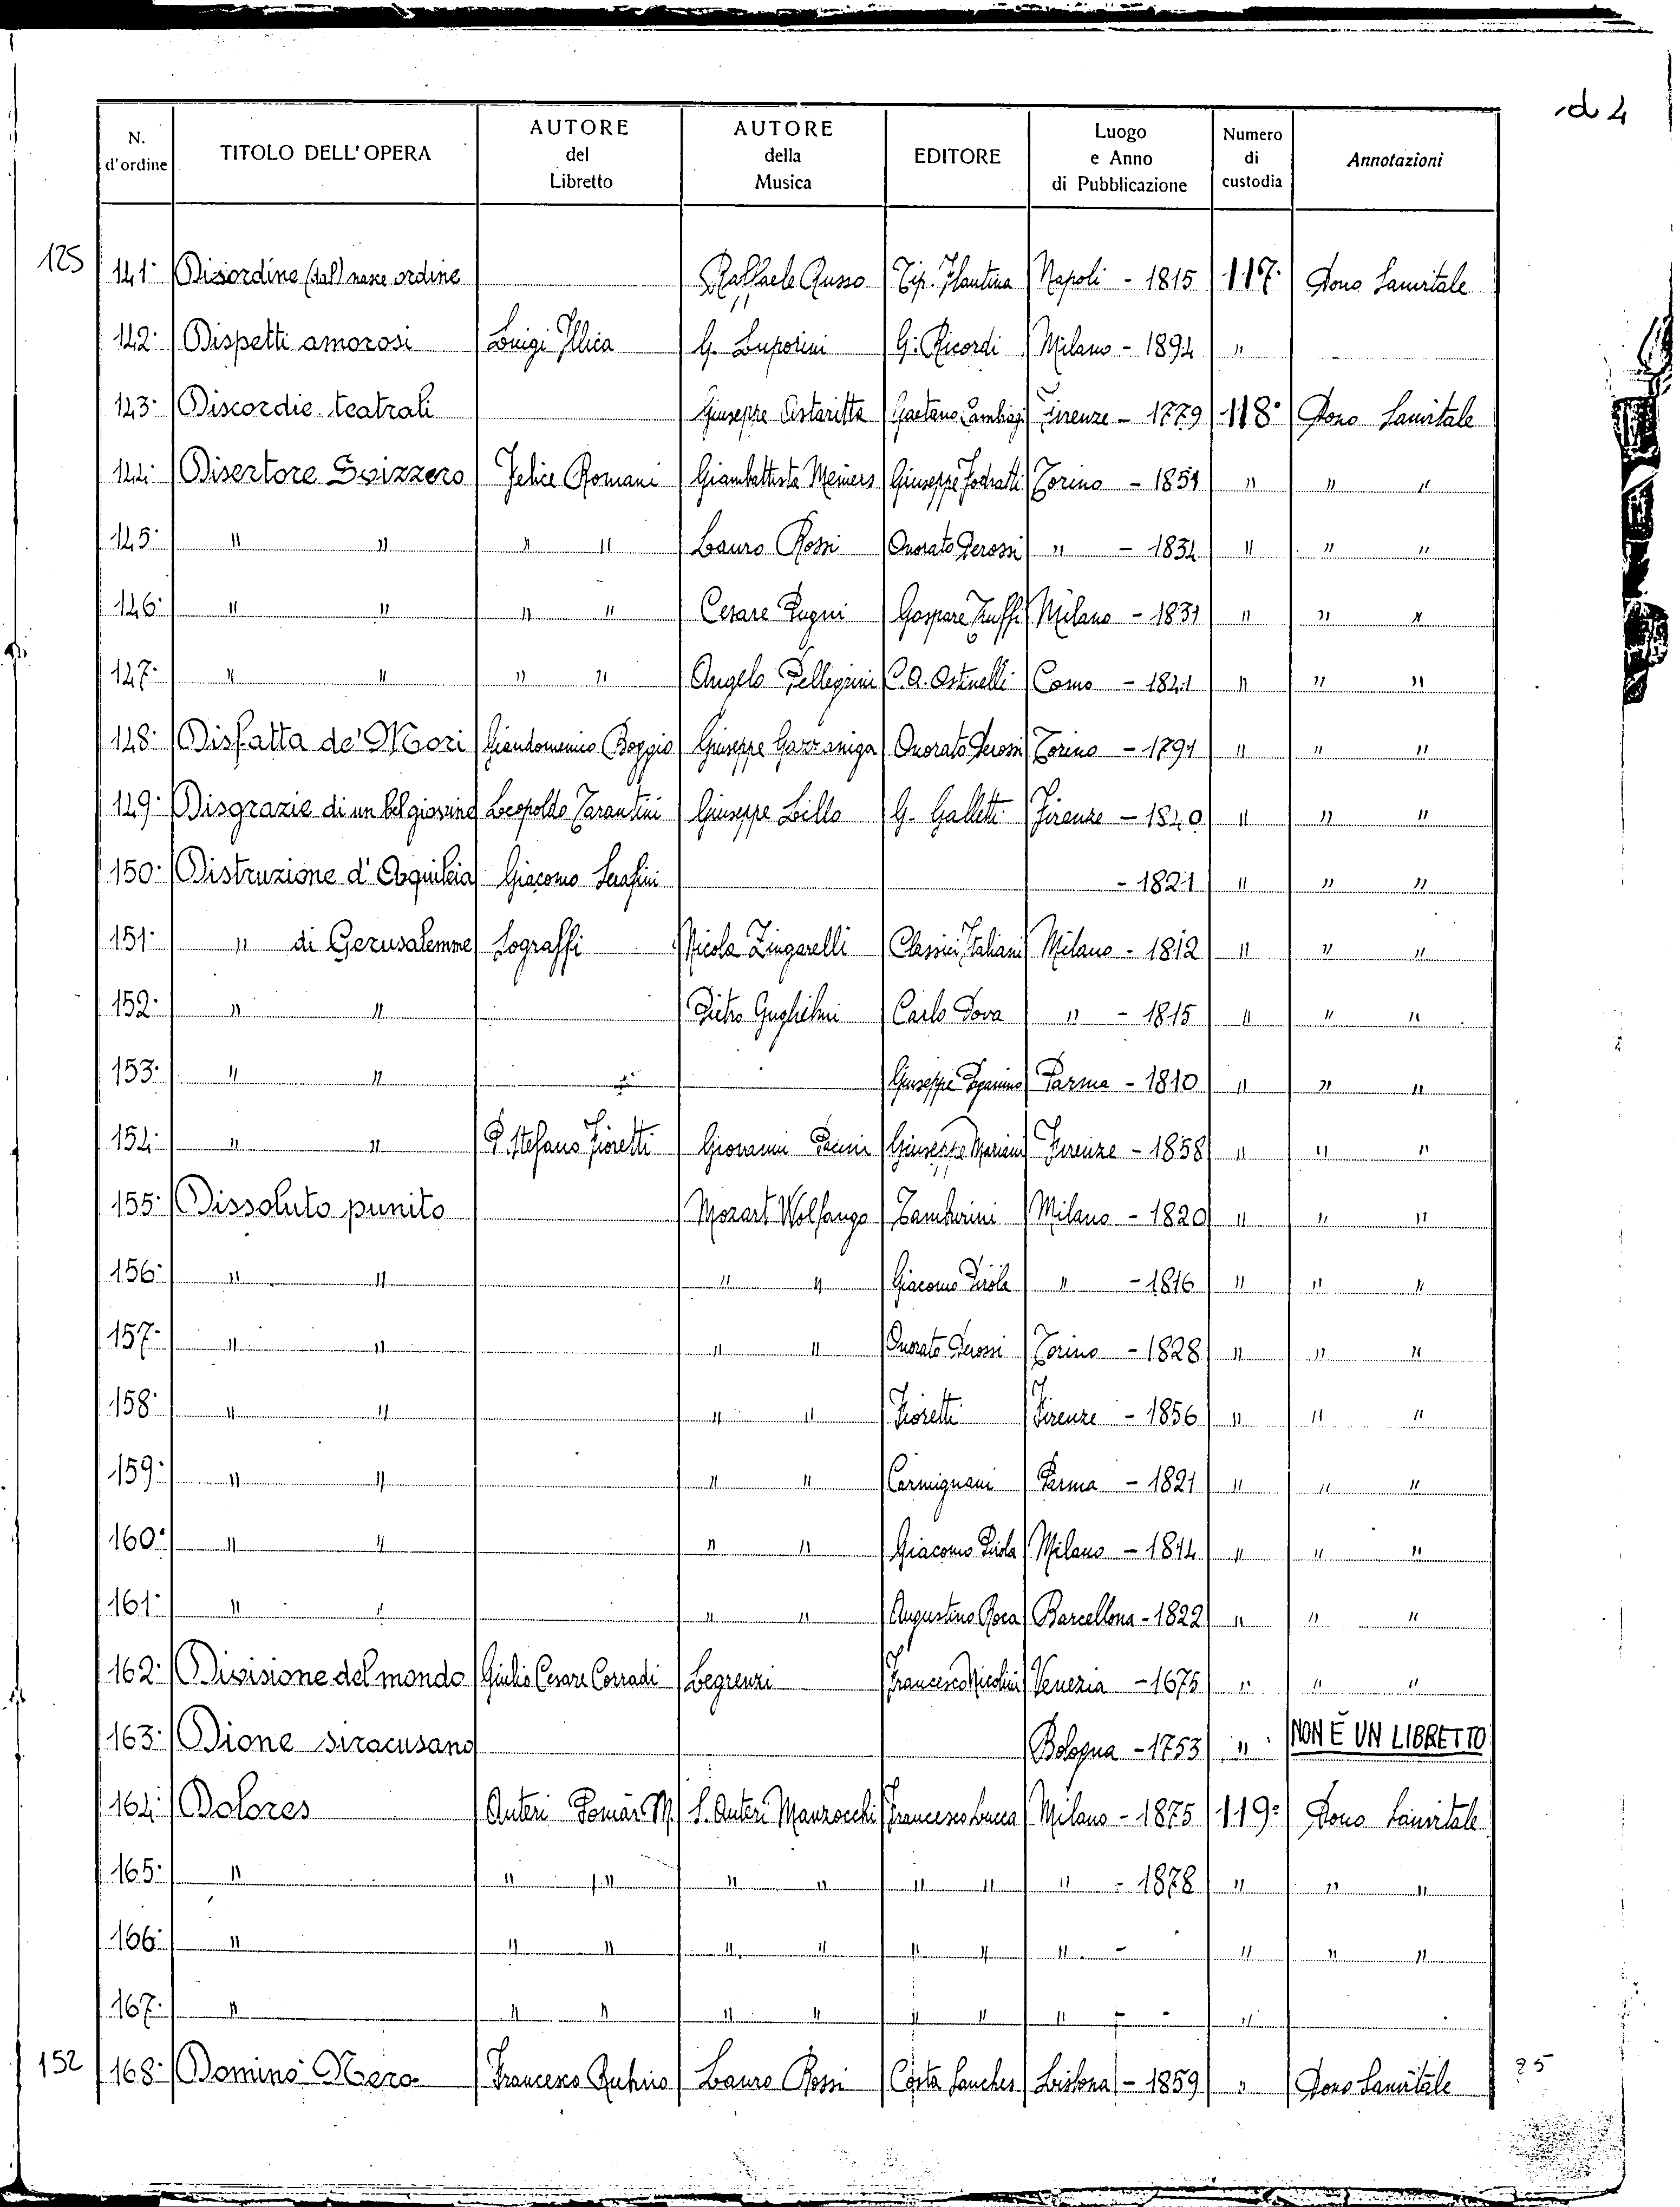 d 4
N. d'ordine TITOLO DELL'OPERA AUTORE del Libretto AUTORE della Musica EDITORE Luogo e Anno di Pubblicazione Numero di custodia Annotazioni
125 141· Disordine (dal) nasce ordine Raffaele Russo Tip. Flautina Napoli - 1815 117· Dono Sanvitale
142· Dispetti amorosi Luigi Illica G. Luporini G. Ricordi Milano - 1894 "
143· Discordie teatrali Giuseppe Astaritta Gaetano Cambiagi Firenze - 1779 118· Dono Sanvitale
144· Disertore Svizzero Felice Romani Giambattista Meiners Giuseppe Fodratti Torino - 1851 " " "
145· " " " " Lauro Rossi Onorato Derossi " - 1834 " " "
146· " " " " Cesare Pugni Gaspare Truffi Milano - 1831 " " "
147· " " " " Angelo Pellegrini C. A. Ostinelli Como - 1841 " " "
148· Disfatta de' Mori Giandomenico Boggio Giuseppe Gazzaniga Onorato Derossi Torino - 1791 " " "
149· Disgrazie di un bel giovine Leopoldo Tarantini Giuseppe Lillo G. Galletti Firenze - 1840 " " "
150· Distruzione d'Aquileia Giacomo Serafini - 1821 " " "
151· " di Gerusalemme Sograffi Nicola Zingarelli Classici Italiani Milano - 1812 " " "
152· " " Pietro Guglielmi Carlo Dova " - 1815 " " "
153· " " Giuseppe Paganino Parma - 1810 " " "
154· " " P. Stefano Fioretti Giovanni Pacini Giuseppe Mariani Firenze - 1858 " " "
155· Dissoluto punito Mozart Wolfango Tamburini Milano - 1820 " " "
156· " " " " Giacomo Pirola " - 1816 " " "
157· " " " " Onorato Derossi Torino - 1828 " " "
158· " " " " Fioretti Firenze - 1856 " " "
159· " " " " Carmignani Parma - 1821 " " "
160· " " " " Giacomo Pirola Milano - 1814 " " "
161· " " " " Augustino Roca Barcellona - 1822 " " "
162· Divisione del mondo Giulio Cesare Corradi Legrenzi Francesco Nicolini Venezia - 1675 " " "
163· Dione siracusano Bologna - 1753 " NON È UN LIBRETTO
164· Dolores Auteri Pomàr M. S. Auteri Manzocchi Francesco Lucca Milano - 1875 119· Dono Sanvitale
165· " " " " " " " " - 1878 " " "
166· " " " " " " " " - " " "
167· " " " " " " " " - - "
152 168· Domino Nero Francesco Rubino Lauro Rossi Costa Sanches Lisbona - 1859 " Dono Sanvitale